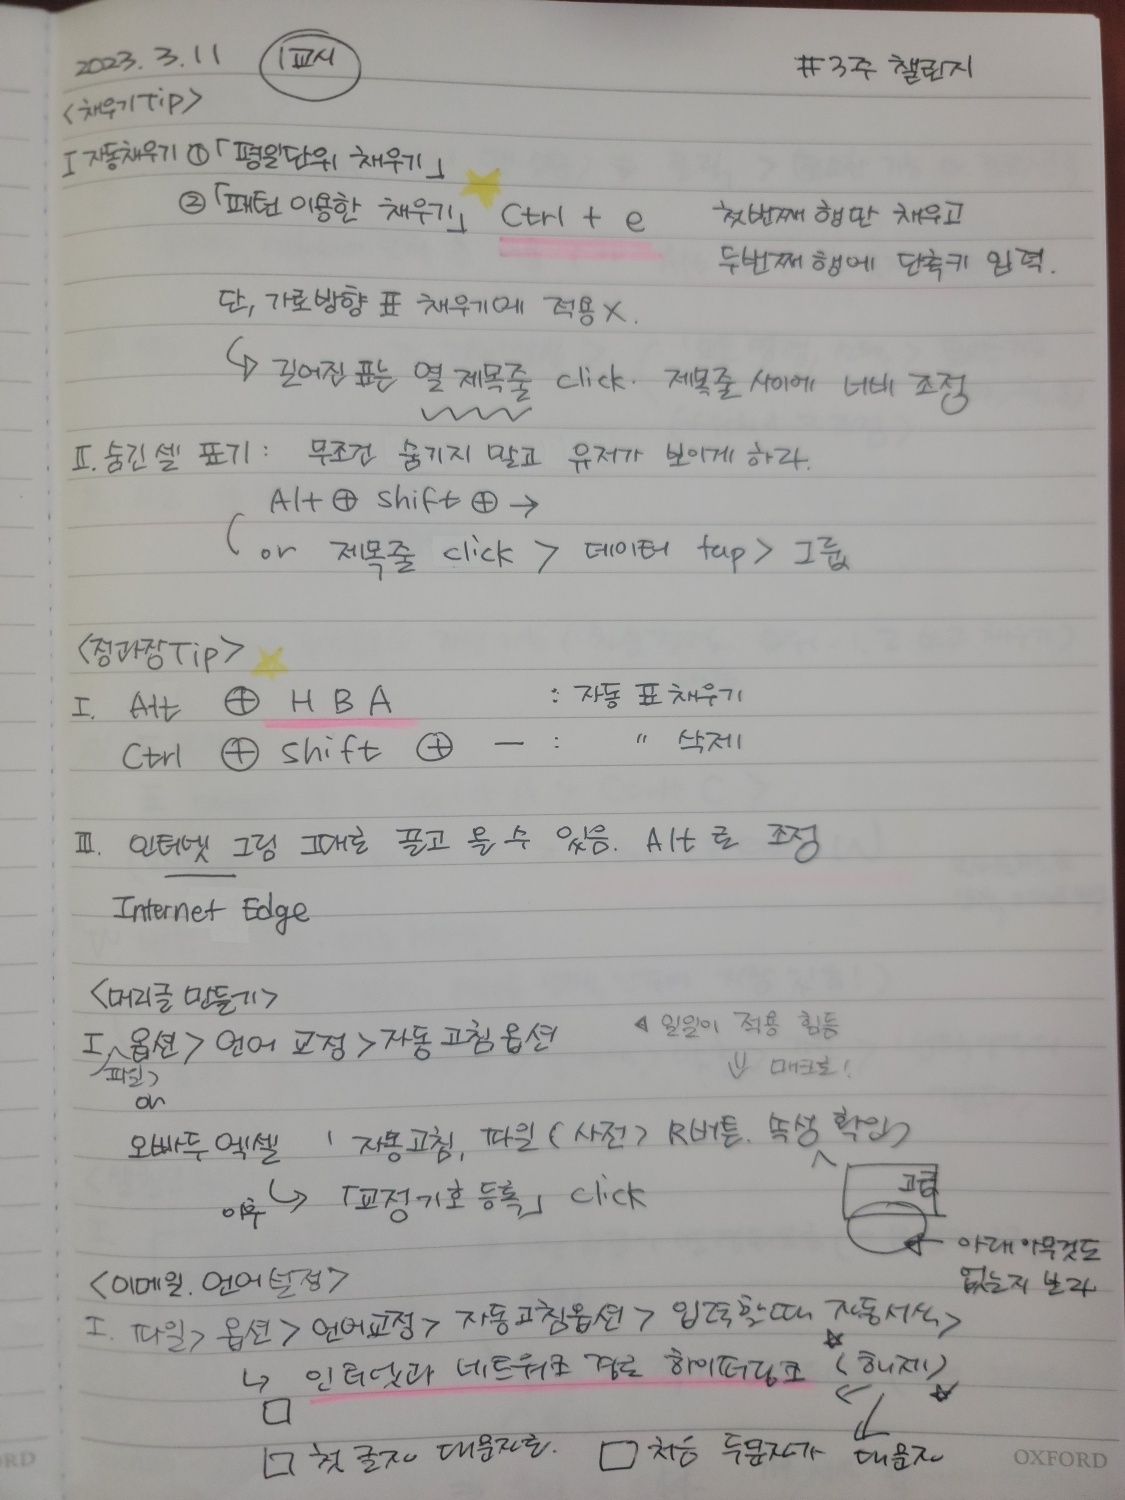 2023. 3. 11 1교시 #3주 챌린지
<채우기Tip>
I 자동채우기 ① 「평일단위 채우기」
② 「패턴 이용한 채우기」 Ctrl + e 첫번째 행만 채우고
두번째 행에 단축키 입력.
단, 가로방향 표 채우기에 적용 X.
↳ 길어진 표는 열 제목줄 click. 제목줄 사이에 너비 조정
II. 숨긴 셀 표기 : 무조건 숨기지 말고 유저가 보이게 하라.
Alt ⊕ shift ⊕ →
or 제목줄 click > 데이터 tap > 그룹
<정과장Tip>
I. Alt ⊕ H B A : 자동 표 채우기
Ctrl ⊕ shift ⊕ — : 〃 삭제
III. 인터넷 그림 그대로 끌고 올 수 있음. Alt로 조정
Internet Edge
<머리글 만들기>
I 옵션 > 언어 교정 > 자동고침옵션 ◀ 일일이 적용 힘듦
파일> ⇓ 매크로!
or
오빠두엑셀 「자동고침, 파일 (사전> R버튼. 속성 확인>
이후 ↳ 「교정기호 등록」 click
← 아래 아무것도
없는지 보라
<이메일. 언어설정>
I. 파일 > 옵션 > 언어교정 > 자동고침옵션 > 입력할때 자동서식>
↳ 인터넷과 네트워크 경로 하이퍼링크 (해제)
□
□ 첫 글자 대문자로. □ 처음 두문자가 대문자
OXFORD